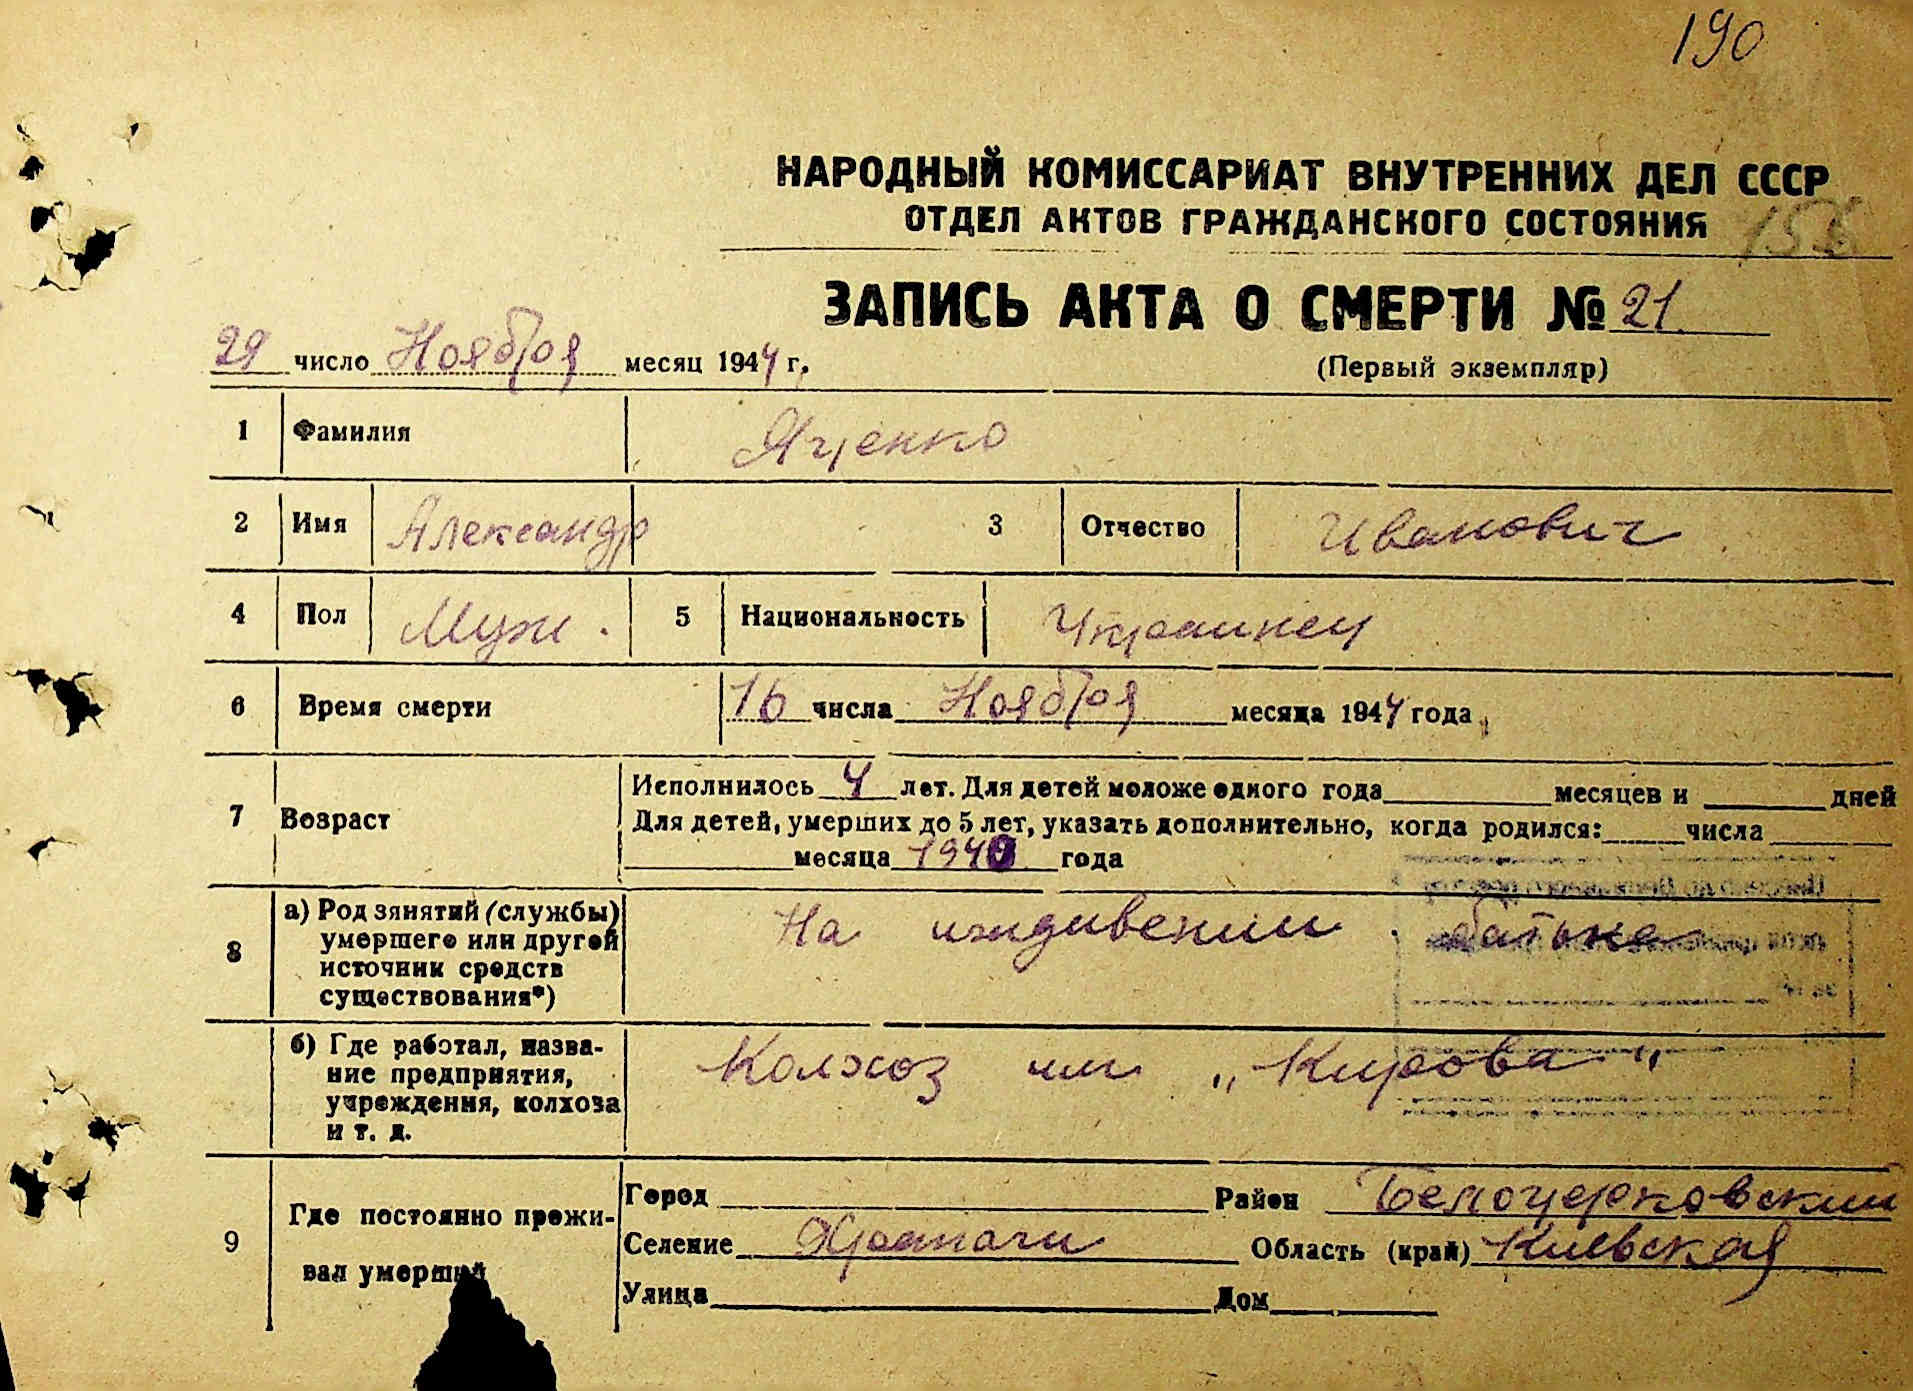 190
НАРОДНЫЙ КОМИССАРИАТ ВНУТРЕННИХ ДЕЛ СССР
ОТДЕЛ АКТОВ ГРАЖДАНСКОГО СОСТОЯНИЯ
ЗАПИСЬ АКТА О СМЕРТИ № 21
29 число Ноября месяц 1944 г.
(Первый экземпляр)
1 Фамилия Яценко
2 Имя Александр 3 Отчество Иванович
4 Пол Муж. 5 Национальность Украинец
6 Время смерти 16 числа Ноября месяца 1944 года
7 Возраст Исполнилось 4 лет. Для детей моложе одного года месяцев и дней
Для детей, умерших до 5 лет, указать дополнительно, когда родился: числа
месяца 1940 года
8 а) Род занятий (службы) На иждивении батька
умершего или другой
источник средств
существования*)
б) Где работал, назва- Колхоз им „Кирова"
ние предприятия,
учреждения, колхоза
и т. д.
9 Где постоянно прожи-
вал умерший
Город Район Белоцерковский
Селение Храпачи Область (край) Киевская
Улица Дом